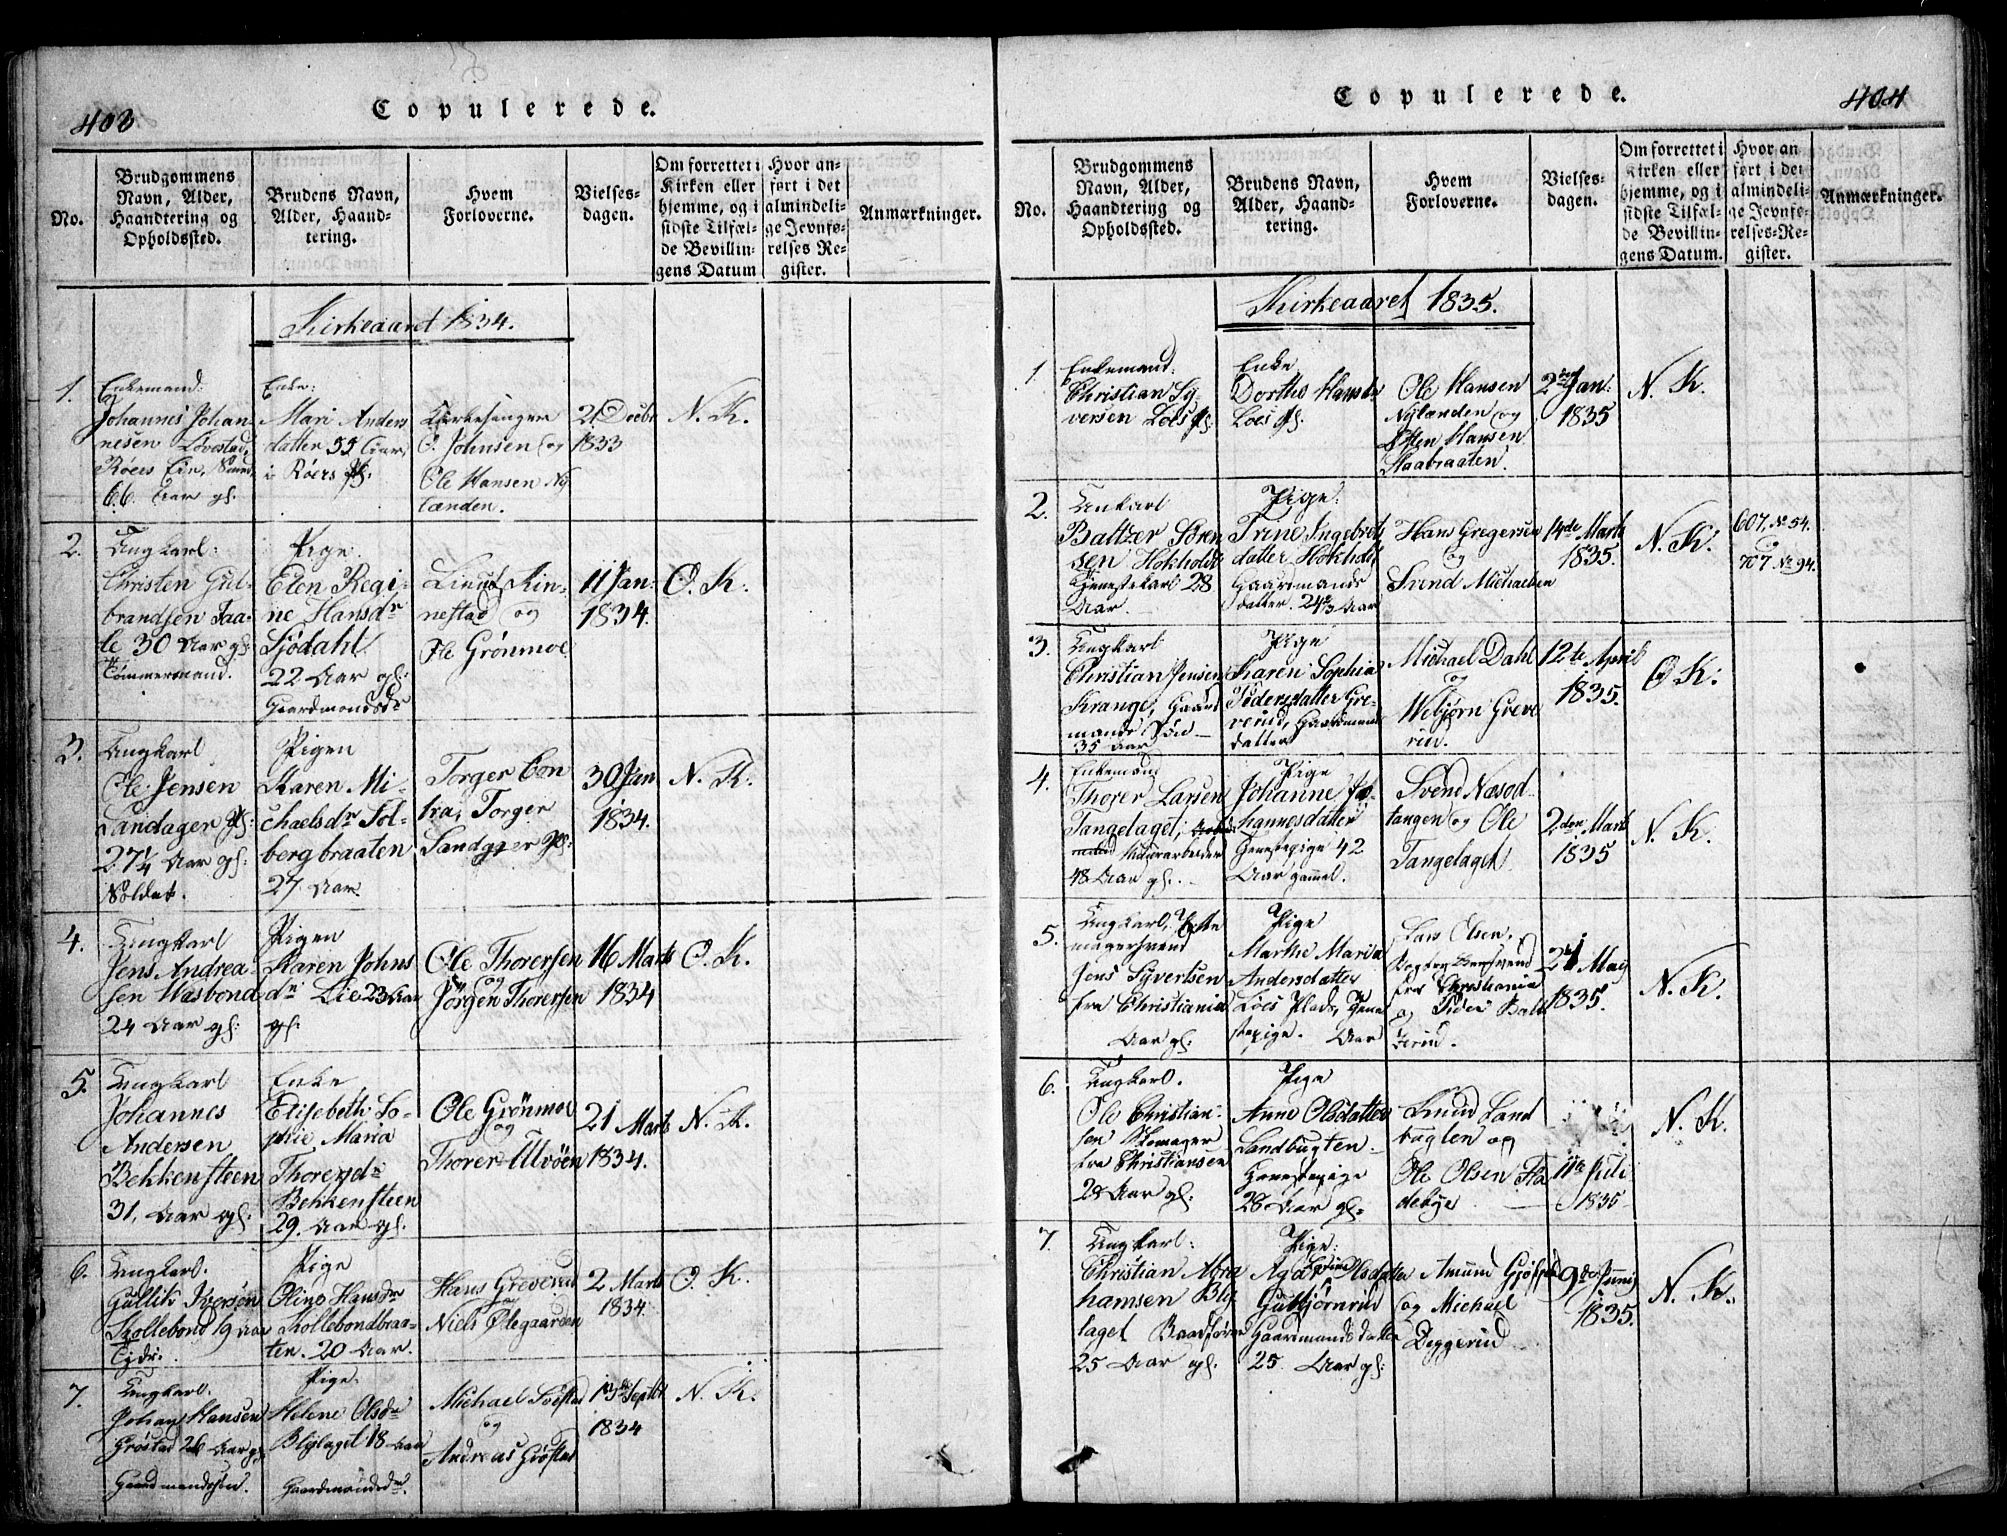 403
Copulerede.
No.
Brudgommens
Navn, Alder,
Haandtering og
Opholdssted.
Brudens Navn,
Alder, Haand-
tering.
Hvem
Forloverne.
Vielses-
dagen.
Om forrettet i
Kirken eller
hjemme, og i
sidste Tilfæl-
de Bevillin-
gens Datum
Hvor an-
ført i det
almindeli-
ge Jevnfø-
relses Re-
gister.
Anmærkninger.
Kirkeaaret 1834.
1.
Enkemand:
Johannes Johan-
nesen Lovestad,
Röers Eie,
66 Aar gl.
Enke:
Mari Anders
datter 55 Aar,
i Röers Pl.
Kirkesanger
O. Johnsen og
Ole Hansen Ny
lænden.
21 Decbr
1833
N. K.
2.
Ungkarl:
Christen Gul-
brandsen Faa-
le 30 Aar gl:
Tömmermand.
Pige.
Elen Regi-
ne Hansdr
Sjödahl
22 Aar gl:
Gaardmandsdr
Knud Kin-
nestad og
Ole Grönmoe
11 Jan:
1834.
O. K.
3.
Ungkarl
Ole Jensen
Sandager Pl:
27¼ Aar gl.
Soldat.
Pigen
Karen Mi-
chaelsdr Sol-
bergbraaten
27 Aar
Torger Con
tra, Torger
Sandager Pl:
30 Jan
1834.
N. K.
4.
Ungkarl
Jens Andrea-
sen Wasbond
24 Aar gl:
Pigen
Karen Johns
dr Lie 23 Aar
gl.
Ole Thorersen
og
Jörgen Thorersen
16 Marts
1834
O. K.
5.
Ungkarl
Johannes
Andersen
Bekkensteen
31, Aar gl:
Enke
Elisebeth So-
phie Maria
Thorersdr
Bekkensteen
29. Aar gl.
Ole Grönmoe
og
Thorer Ulvöen
21 Marts
1834.
N. K.
6.
Ungkarl.
Gullik Iversen
Skollebond 19 Aar
Pige
Oline Hansdr
Skollebondbraa-
ten. 20 Aar.
Hans Greverud
Niels Ødegaarden
2 Marts
1834
O. K.
7.
Ungkarl.
Johan Hansen
Gröstad 26 Aar gl
Gaardmandssön.
Pige.
Helene Olsdr
Blylaget 18 Aar
Gaardmandsdr.
Michael Svestad
og
Andreas Gröstad
13de Septbr
1834
N. K.
404
Copulerede.
No.
Brudgommens
Navn, Alder,
Haandtering og
Opholdssted.
Brudens Navn,
Alder, Haand-
tering.
Hvem
Forloverne.
Vielses-
dagen.
Om forrettet i
Kirken eller
hjemme, og i
sidste Tilfæl-
de Bevillin-
gens Datum.
Hvor an
ført i det
almindeli-
ge Jevnfø-
relses-Re-
gister.
Anmærkninger.
Kirkeaaret 1835.
1.
Enkemand:
Christian Sy-
versen Loes Pl.
Enke
Dorthe Hansdr
Loes Pl.
Ole Hansen
Nylænden og
Hansen
Skaabraaten.
2den Jan:
1835
N. K.
2.
Unkarl
Baltzer Sören
sen Hokholdt
Tjenestekarl 28
Aar
Pige:
Trine Ingebret
datter Hokholdt
Gaardmands
datter. 24⅔ Aar
Hans Gregersen
og
Svend Michaelsen
14de Marts
1835.
N. K.
607. No 54.
og
707 No 94.
3.
Ungkarl
Christian Jensen
Krange, Gaard
mands Sön
35 Aar
Pige
Karen Sophia
Pedersdatter Gre-
verud, Gaardmands
datter
Michael Dahl
og
Webjörn Greve
rud.
12te April
1835.
O K:
4.
Enkemand
Thorer Larsen
Tangelaget,
Murarbeider
48 Aar gl.
Pige
Johanne Jo-
hannesdatter
Tjenestepige 42
Aar gammel.
Svend Næsod-
tangen og Ole
Tangelaget
2den Marts
1835
N. K.
5.
Ungkarl,
magersvend
Jens Syvertsen
fra Christiania
Aar gl:
Pige
Marthe Maria
Andersdatter
Loes Plads, Tjene
stepige. Aar
Lars Olsen,
fra Christiania
og Peder Balt
zerud.
24 May
1835.
N. K.
6.
Ungkarl.
Ole Christian-
sen Skomager
fra Christiansen
28 Aar gl:
Pige
Anne Olsdatter
Sandbugten
Tjenestepige
28 Aar gl.
Knud Sand
bugten og
Ole Olsen Fla
debye
11te Juli
1835
N. K.
7.
Ungkarl:
Christian Abra
hamsen Bly
laget Baadförer
25 Aar gl.
Pige:
Agat Karine Olsdatter
Gulbjørnrud
Gaardmandsdatter
25 Aar gl:
Amund Gjøfsjø
og Michael
Deggerud
9de Junij
1835.
N. K.